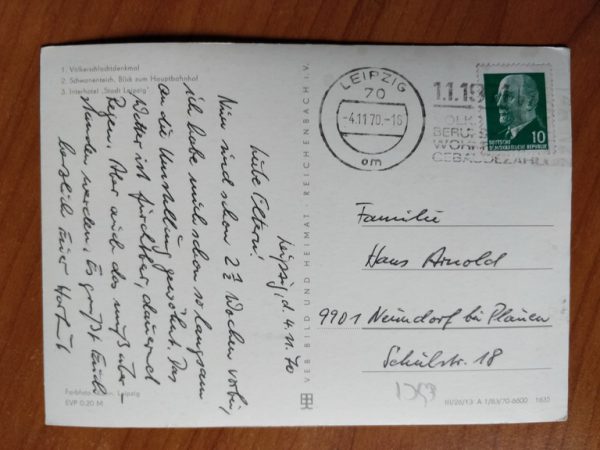 1. Völkerschlachtdenkmal
2. Schwanenteich, Blick zum Hauptbahnhof
3. Interhotel „Stadt Leipzig"
Leipzig, d. 4.11.70
Liebe Eltern!
Nun sind schon 2½ Wochen vorbei,
ich habe mich schon so langsam
an die Umstellung gewöhnt. Das
Wetter ist furchtbar, dauernd
Regen. Aber auch das muß über-
standen werden. Es grüßt Euch
herzlich Euer Hartmut
Farbfoto: Leipzig
EVP 0,20 M
VEB BILD UND HEIMAT REICHENBACH i. V.
LEIPZIG
70
-4.11.70.-16
om
1.1.19
VOLKS
BERUFS
WOHN
GEBÄUDEZÄHL
10
DEUTSCHE
DEMOKRATISCHE REPUBLIK
Familie
Hans Arnold
9901 Neundorf bei Plauen
Schulstr. 18
III/26/13 A 1/83/70-6600 1635